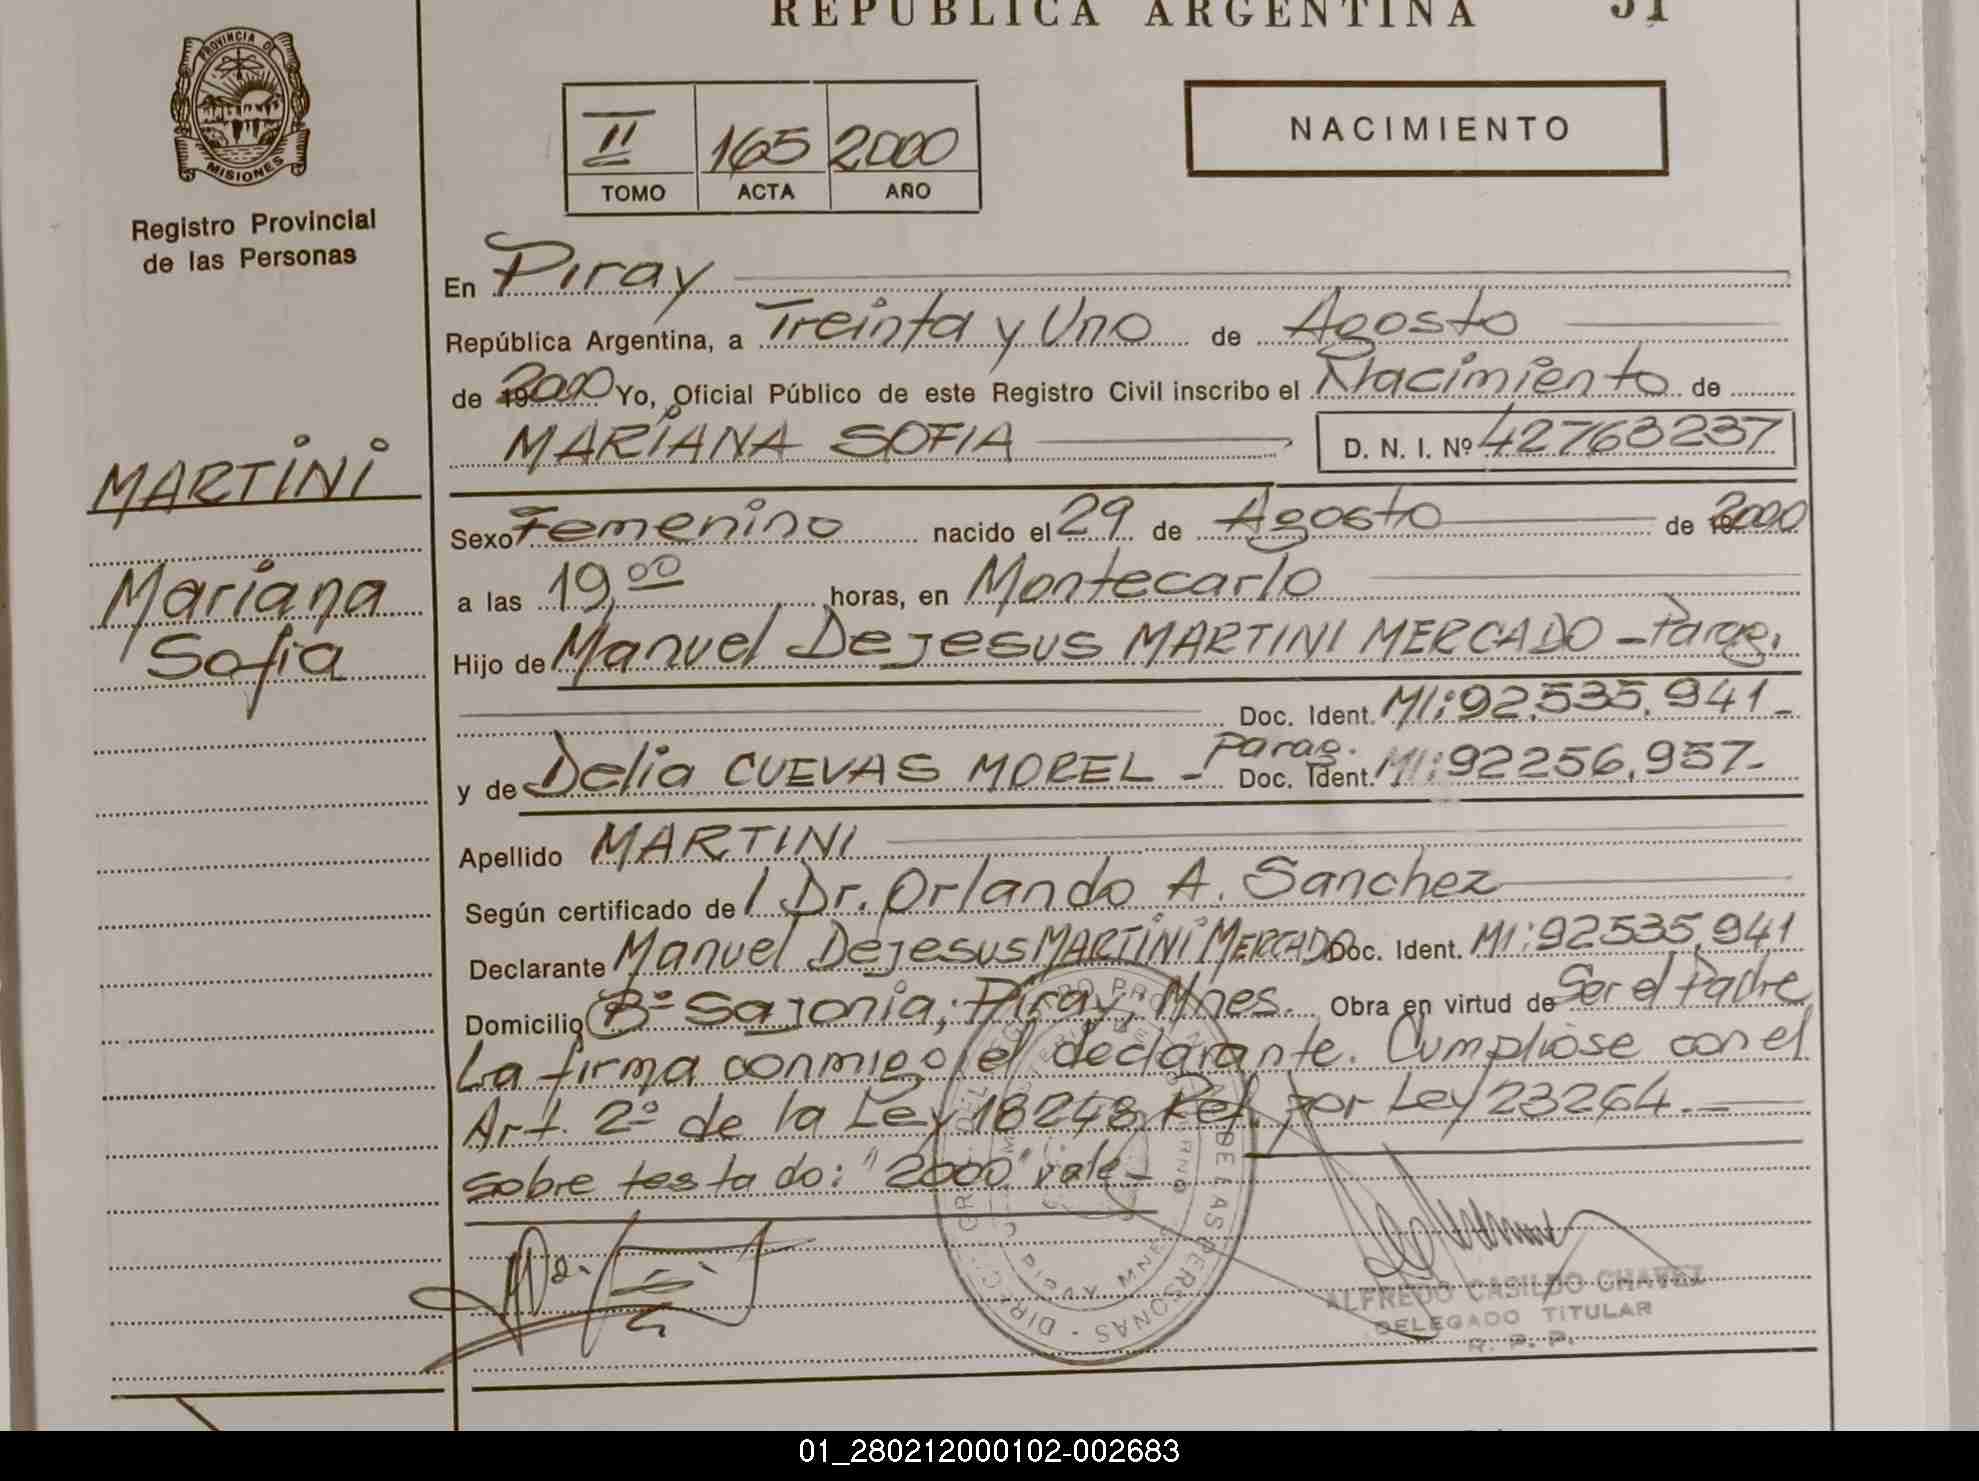 REPUBLICA ARGENTINA 51
PROVINCIA DE
MISIONES
Registro Provincial
de las Personas
II 165 2000
TOMO ACTA AÑO
NACIMIENTO
En Piray
República Argentina, a Treinta y Uno de Agosto
de 2000 Yo, Oficial Público de este Registro Civil inscribo el Nacimiento de
MARIANA SOFIA D. N. I. Nº 42763237
MARTINI
Mariana
Sofia
Sexo Femenino nacido el 29 de Agosto de 2000
a las 19,00 horas, en Montecarlo
Hijo de Manuel DeJesus MARTINI MERCADO - Parag.
Doc. Ident. MI:92.535.941-
y de Delia CUEVAS MOREL - Parag. Doc. Ident. MI:92256.957-
Apellido MARTINI
Según certificado de l Dr. Orlando A. Sanchez
Declarante Manuel Dejesus MARTINI MERCADO Doc. Ident. MI:92535.941
Domicilio Bº Sajonia; Piray, Mnes. Obra en virtud de Ser el Padre
La firma conmigo el declarante. Cumpliose con el
Art. 2º de la Ley 18248 Ref. por Ley 23264.-
sobre testado: "2000" vale-
ALFREDO CASILDO CHAVEZ
DELEGADO TITULAR
R. P. P.
01_280212000102-002683